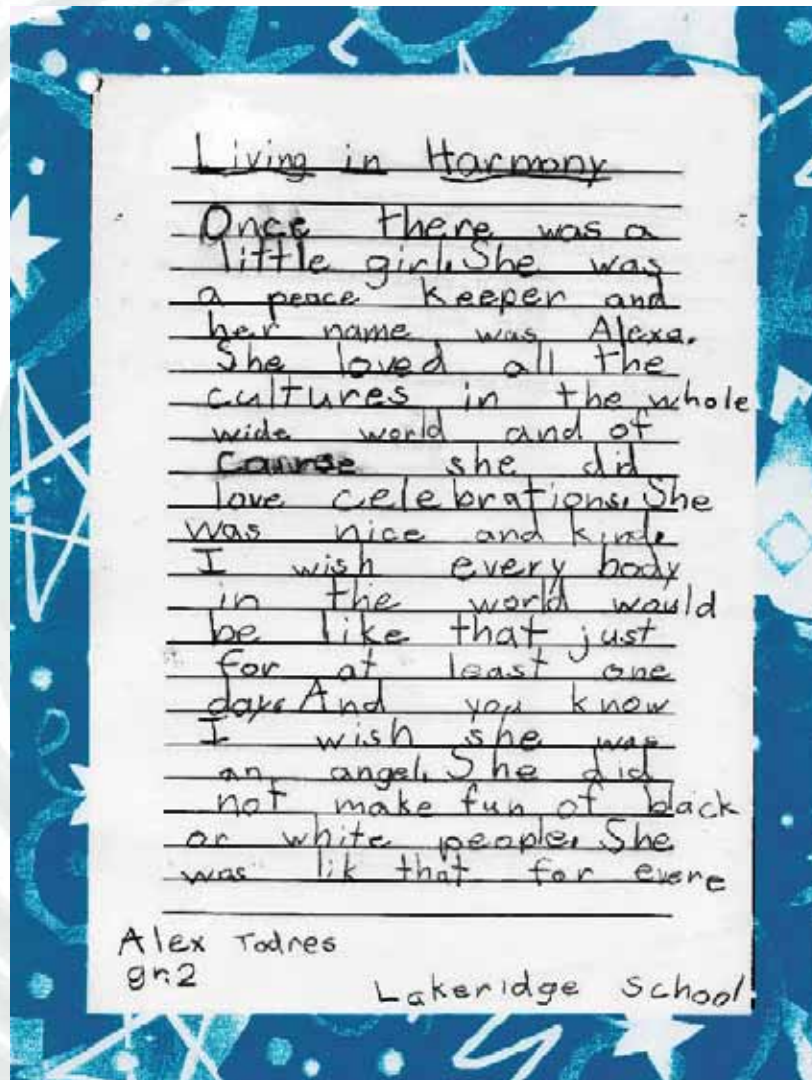 Living in Harmony
Once there was a
little girl. She was
a peace keeper and
her name was Alexa.
She loved all the
cultures in the whole
wide world and of
she did
love celebrations. She
was nice and kind.
I wish every body
in the world would
be like that just
for at least one
day. And you know
I wish she was
an angel. She did
not make fun of black
or white people. She
was lik that for evere
Alex Todres
gr.2
Lakeridge School